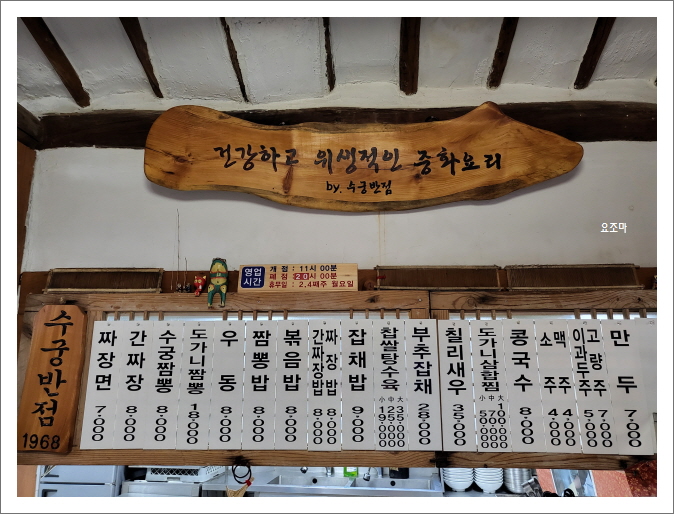 건강하고 위생적인 중화요리
by. 수궁반점
요조마
영업시간
개 점 : 11시 00분
폐 점 : 20시 00분
휴무일 : 2,4째주 월요일
수궁반점
1968
짜장면 7,000
간짜장 8,000
수궁짬뽕 8,000
도가니짬뽕 18,000
우동 8,000
짬뽕밥 8,000
볶음밥 8,000
간짜장밥 8,000
짜장밥 8,000
잡채밥 9,000
찹쌀탕수육 小 中 大
부추잡채 28,000
칠리새우 35,000
도가니살찰찜 小 中 大
콩국수 8,000
소주 4,000
맥주 4,000
이과두주 5,000
고량주 7,000
만두 7,000